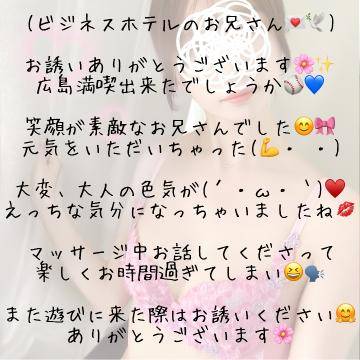 (ビジネスホテルのお兄さん💌🕊️)
お誘いありがとうございます🌸✨
広島満喫出来たでしょうか⚾💙
笑顔が素敵なお兄さんでした😊🎀
元気をいただいちゃった(💪・ ・)
大変、大人の色気が(´・ω・`)♥️
えっちな気分になっちゃいましたね💋
マッサージ中お話してくださって
楽しくお時間過ぎてしまい😆🗣️
また遊びに来た際はお誘いください🤗
ありがとうございます🌸